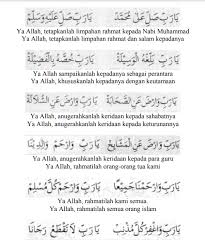 يَارَبِّ صَلِّ عَلٰى مُحَمَّدْ يَارَبِّ صَلِّ عَلَيْهِ وَسَلِّمْ
Ya Allah, tetapkanlah limpahan rahmat kepada Nabi Muhammad
Ya Allah, tetapkanlah limpahan rahmat dan salam kepadanya
يَارَبِّ بَلِّغْهُ الْوَسِيْلَةْ يَارَبِّ خُصَّهْ بِالْفَضِيْلَةْ
Ya Allah sampaikanlah kepadanya sebagai perantara
Ya Allah, khususkanlah kepadanya dengan keutamaan
يَارَبِّ وَارْضَ عَنِ الصَّحَابَةْ يَارَبِّ وَارْضَ عَنِ السُّلَالَةْ
Ya Allah, anugerahkanlah keridaan kepada sahabatnya
Ya Allah, anugerahkanlah keridaan kepada keturunannya
يَارَبِّ وَارْضَ عَنِ الْمَشَايِخْ يَارَبِّ وَارْحَمْ وَالِدِيْنَا
Ya Allah, anugerahkanlah keridaan kepada para guru
Ya Allah, rahmatilah orang-orang tua kami
يَارَبِّ وَارْحَمْنَا جَمِيْعًا يَارَبِّ وَارْحَمْ كُلَّ مُسْلِمْ
Ya Allah, rahmatilah kami semua
Ya Allah, rahmatilah semua orang islam
يَارَبِّ وَاغْفِرْ لِكُلِّ مُذْنِبْ يَارَبِّ لَاتَقْطَعْ رَجَانَا